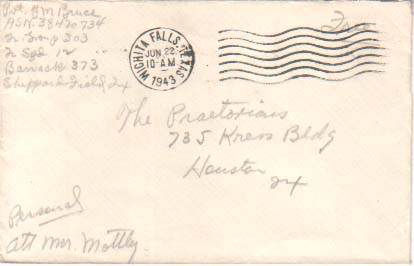 Pvt. H M Bruce
ASN. 38420734
Tr Group 303
Tr Sqd 12
Barrack 373
Sheppard Field Tx
WICHITA FALLS, TEXAS
JUN 22
10-AM
1943
Free
The Praetorians
735 Kress Bldg
Houston
Tx
Personal
Att Mr.